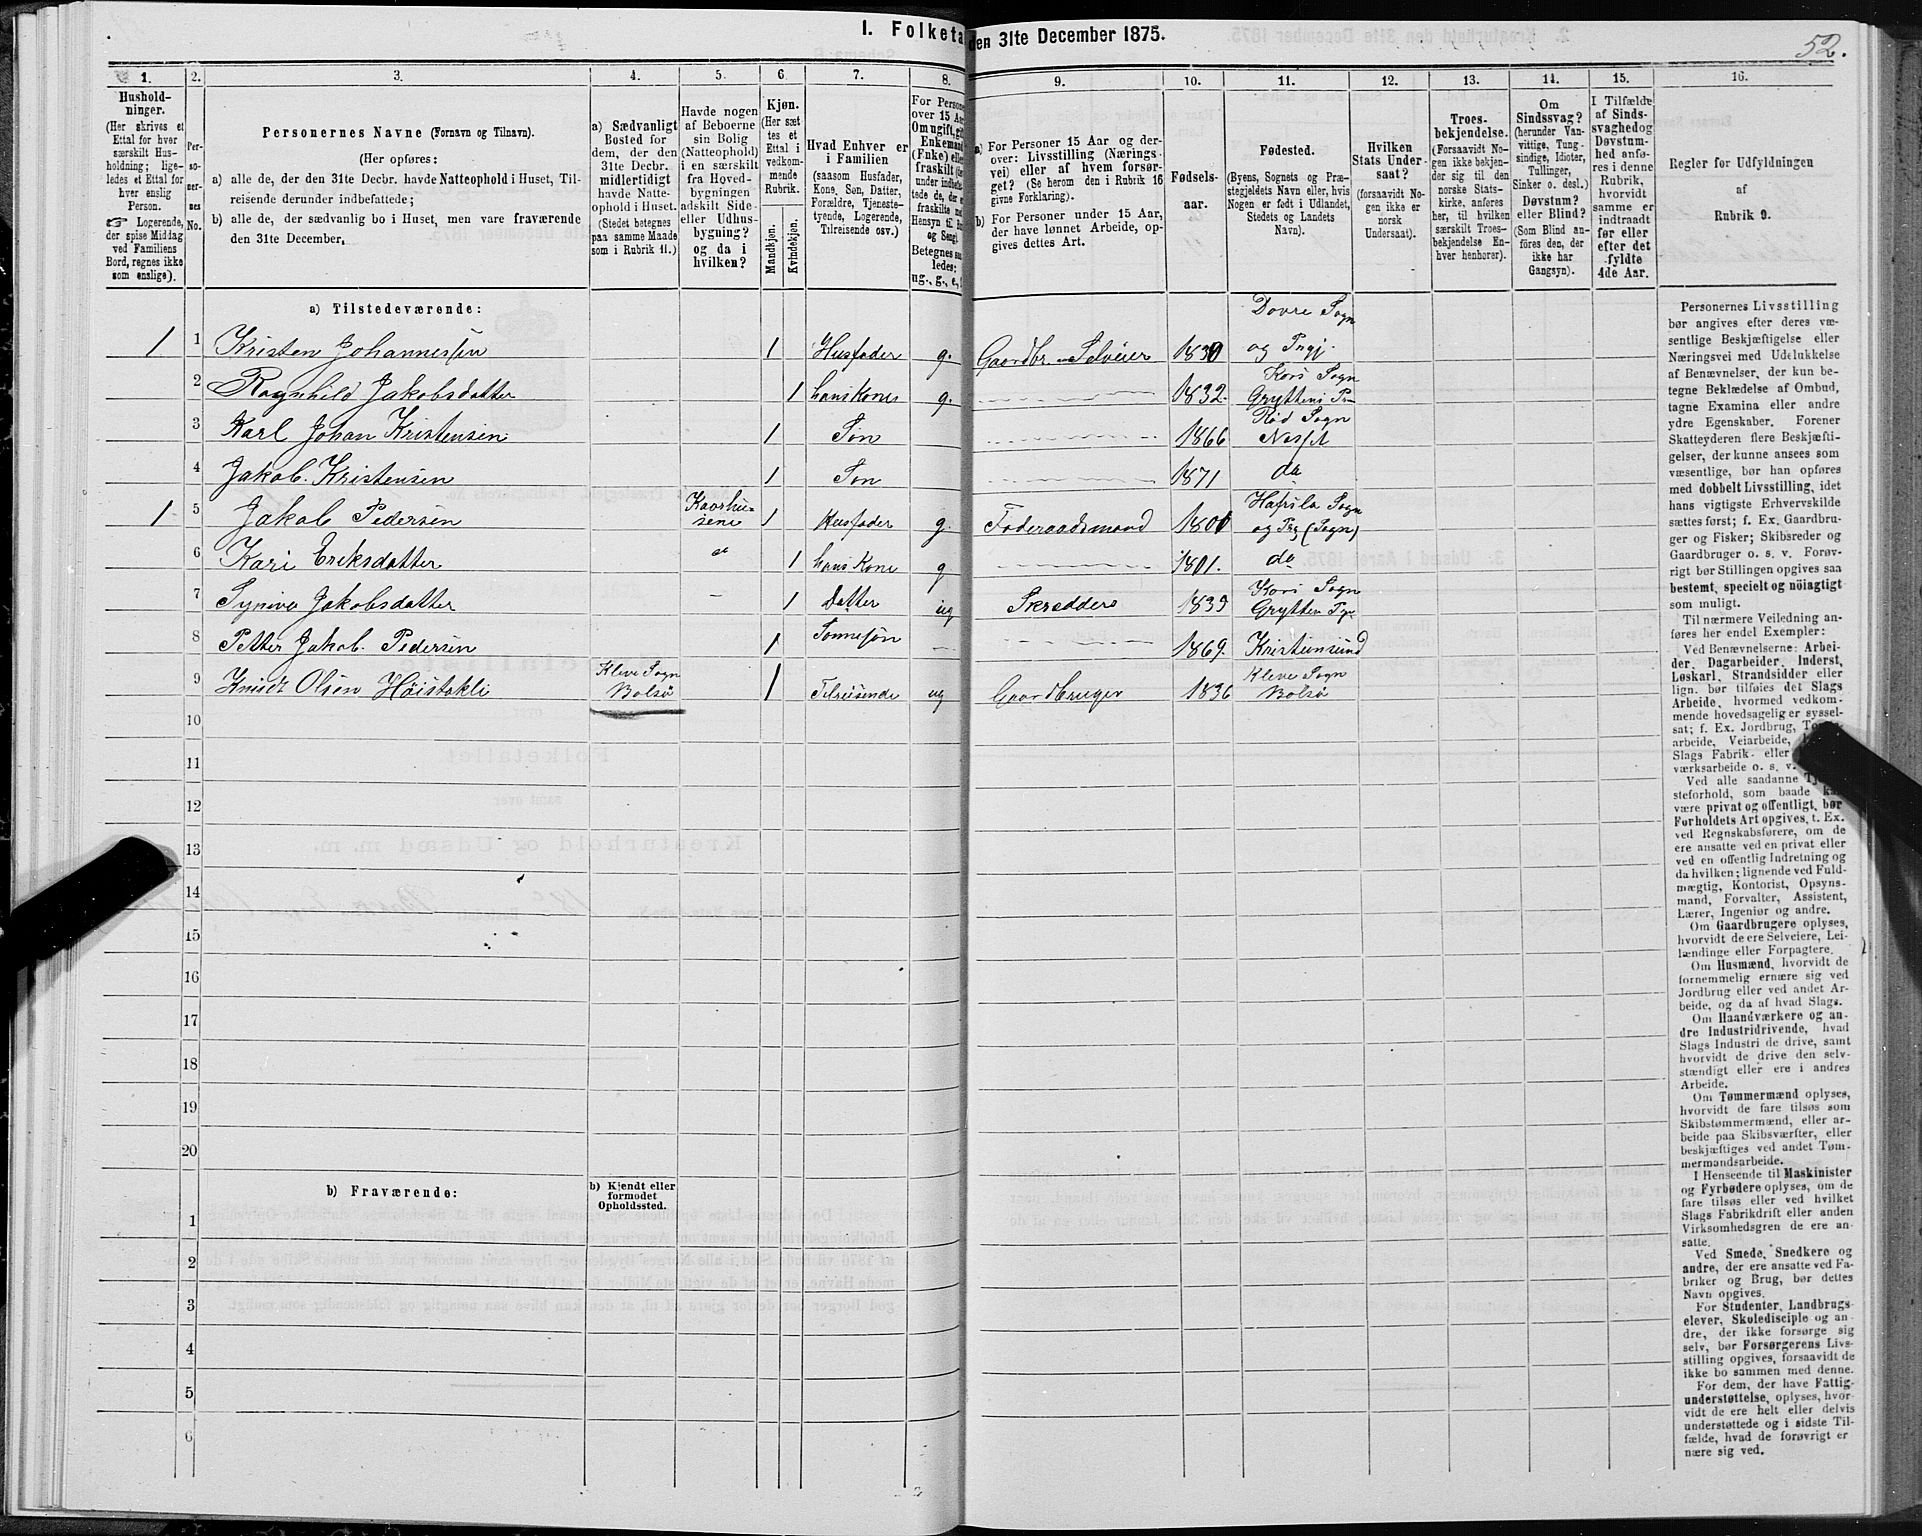 I. Folketa
den 31te December 1875.
52.
1.
2.
3.
4.
5.
6.
7.
8.
9.
10.
11.
12.
13.
14.
15.
16.
Hushold-
ninger.
(Her skrives et
Ettal for hver
særskilt Hus-
holdning; lige-
ledes et Ettal for
hver enslig
Person.
☞ Logerende,
der spise Middag
ved Familiens
Bord, regnes ikke
som enslige).
Per-
so-
ner-
nes
No.
Personernes Navne (Fornavn og Tilnavn).
(Her opføres:
a) alle de, der den 31te Decbr. havde Natteophold i Huset, Til-
reisende derunder indbefattede;
b) alle de, der sædvanlig bo i Huset, men vare fraværende
den 31te December.
a) Sædvanligt
Bosted for
dem, der den
31te Decbr.
midlertidigt
havde Natte-
ophold i Huset.
(Stedet betegnes
paa samme Maade
som i Rubrik 11.)
Havde nogen
af Beboerne
sin Bolig
(Natteophold)
i en særskilt
fra Hoved-
bygningen
adskilt Side-
eller Udhus-
bygning?
og da i
hvilken?
Kjøn.
(Her sæt
tes et
Ettal i
vedkom-
mende
Rubrik.
Mandkjøn.
Kvindekjøn.
Hvad Enhver er
i Familien
(saasom Husfader,
Kone, Søn, Datter,
Forældre, Tjeneste-
tyende, Logerende,
Tilreisende osv.)
For Persone
over 15 Aa
Om ugift, gi
Enkemand
(Enke) elle
fraskilt
under indbefa
tede de, der e
fraskilte
Hensyn til
og Seng)
Betegnes sa
ledes:
ug., g., e.,
a) For Personer 15 Aar og der-
over: Livsstilling (Nærings-
vei) eller af hvem forsør-
get? (Se herom den i Rubrik 16
givne Forklaring).
b) For Personer under 15 Aar,
der have lønnet Arbeide, op-
gives dettes Art.
Fødsels-
aar.
Fødested.
(Byens, Sognets og Præ-
stegjeldets Navn eller, hvis
Nogen er født i Udlandet,
Stedets og Landets
Navn).
Hvilken
Stats Under-
saat?
(forsaavidt No-
gen ikke er
norsk
Undersaat).
Troes-
bekjendelse.
(Forsaavidt No-
gen ikke bekjen-
der sig til den
norske Stats-
kirke, anføres
her, til hvilken
særskilt Troes-
bekjendelse En-
hver henhører).
Om
Sindssvag?
(herunder Van-
vittige, Tung-
sindige, Idioter,
Tullinger,
Sinker o. desl.)
Døvstum?
eller Blind?
(Som Blind an-
føres den, der
ikke har
Gangsyn).
I Tilfælde
af Sinds-
svaghed og
Døvstum-
hed anfø-
res i denne
Rubrik,
hvorvidt
samme er
indtraadt
før eller
efter det
fyldte
4de Aar.
Regler for Udfyldningen
af
Rubrik 9.
a) Tilstedeværende:
1 1 Kristen Johannessen 1 Husfader g. Gaardbr. Selveier 1830 Dovre Sogn
og Prgj.
2 Ragnhild Jakobsdatter 1 hans Kone g. 1832. Kors Sogn
Gryttens Pr
3 Karl Johan Kristensen 1 Søn 1866 Rød Sogn
Nesset
4 Jakob Kristensen 1 Søn 1871 do
1 5 Jakob Pedersen 1 Husfader g. Føderaadsmand 1801 Hafslo Sogn
og Prg (Sogn)
6 Kari Eriksdatter 1 hans Kone g 1801. do
7 Synive Jakobsdatter - 1 Datter ug 1835 Kors Sogn
8 Petter Jakob Pedersen 1 Sønnesøn 1869. Kristiansund
9 Knudt Olsen Kleve Sogn
Bolsø 1 Tilreisende ug Gaardbruger 1836 Kleve Sogn
Bolsø
10
11
12
13
14
15
16
17
18
19
20
b) Fraværende:
b) Kjendt eller
formodet
Opholdssted.
1
2
3
4
5
6
Personernes Livsstilling
bør angives efter deres væ-
sentlige Beskjæftigelse eller
Næringsvei med Udelukkelse
af Benævnelser, der kun be-
tegne Beklædelse af Ombud,
tagne Examina eller andre
ydre Egenskaber. Forener
Skatteyderen flere Beskjæfti-
gelser, der kunne ansees som
væsentlige, bør han opføres
med dobbelt Livsstilling, idet
hans vigtigste Erhvervskilde
sættes først; f. Ex. Gaardbru-
ger og Fisker; Skibsreder og
Gaardbruger o. s. v. Forøv-
rigt bør Stillingen opgives saa
bestemt, specielt og nöiagtigt
som muligt.
Til nærmere Veiledning an-
føres her endel Exempler:
Ved Benævnelserne: Arbei-
der, Dagarbeider, Inderst,
Løskarl, Strandsidder eller
lign. bør tilføies det Slags
Arbeide, hvormed vedkom-
mende hovedsagelig er syssel-
sat; f. Ex. Jordbrug,
arbeide, Veiarbeide,
Slags Fabrik- eller
værksarbeide o. s. v.
Ved alle saadanne
steforhold, som baade
være privat og offentligt, bør
Forholdets Art opgives, t. Ex.
ved Regnskabsførere, om de
ere ansatte ved en privat eller
ved en offentlig Indretning og
da hvilken; lignende ved Fuld-
mægtig, Kontorist, Opsyns-
mand, Forvalter, Assistent,
Lærer, Ingeniør og andre.
Om Gaardbrugere oplyses,
hvorvidt de ere Selveiere, Lei-
lændinge eller Forpagtere.
Om Husmænd, hvorvidt de
fornemmelig ernære sig ved
Jordbrug eller ved andet Ar-
beide, og da af hvad Slags.
Om Haandværkere og an-
dre Industridrivende, hvad
Slags Industri de drive, samt
hvorvidt de drive den selv-
stændigt eller ere i andres
Arbeide.
Om Tømmermænd oplyses,
hvorvidt de fare tilsøs som
Skibstømmermænd, eller ar-
beide paa Skibsværfter, eller
beskjæftiges ved andet Tøm-
mermandsarbeide.
I Henseende til Maskinister
og Fyrbødere oplyses, om de
fare tilsøs eller ved hvilket
Slags Fabrikdrift eller anden
Virksomhedsgren de ere an-
satte.
Ved Smede, Snedkere og
andre, der ere ansatte ved Fa-
briker og Brug, bør dettes
Navn opgives.
For Studenter, Landbrugs-
elever, Skoledisciple og an-
dre, der ikke forsørge sig
selv, bør Forsørgerens Livs-
stilling opgives, forsaavidt de
ikke bo sammen med denne.
For dem, der have Fattig-
understøttelse, oplyses, hvor-
vidt de ere helt eller delvis
understøttede og i sidste Til-
fælde, hvad de forøvrigt er
nære sig ved.